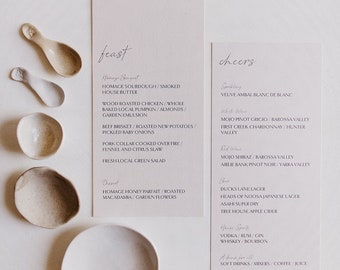 feast
Homage Banquet
HOMAGE SOURDOUGH / SMOKED
HOUSE BUTTER
WOOD ROASTED CHICKEN / WHOLE
BAKED LOCAL PUMPKIN / ALMONDS /
GARDEN EMULSION
BEEF BRISKET / ROASTED NEW POTATOES /
PICKLED BABY ONIONS
PORK COLLAR COOKED OVER FIRE /
FENNEL AND CITRUS SLAW
FRESH LOCAL GREEN SALAD
Dessert
HOMAGE HONEY PARFAIT / ROASTED
MACADAMIA / GARDEN FLOWERS
cheers
Sparkling
VEUVE AMBAL BLANC DE BLANC
White Wine
MOJO PINOT GRIGIO / BAROSSA VALLEY
FIRST CREEK CHARDONNAY / HUNTER
VALLEY
Red Wine
MOJO SHIRAZ / BAROSSA VALLEY
AIRLIE BANK PINOT NOIR / YARRA VALLEY
Beer
DUCKS LANE LAGER
HEADS OF NOOSA JAPANESE LAGER
ASAHI SUPER DRY
TREE HOUSE APPLE CIDER
House Spirits
VODKA / RUM / GIN
WHISKEY / BOURBON
SOFT DRINKS / MIXERS / COFFEE / JUICE